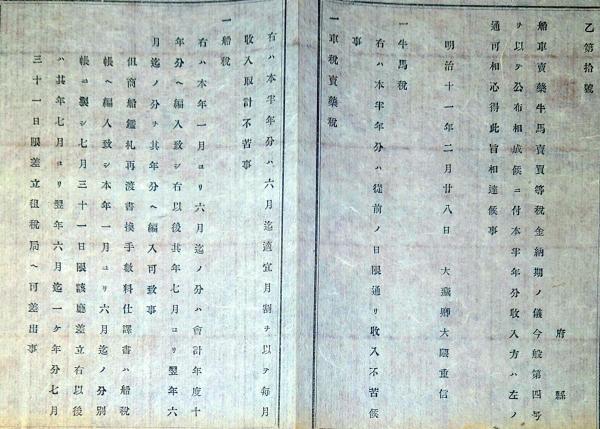 乙第拾號
府縣
船車賣藥牛馬賣買等稅金納期ノ儀今般第四号
ヲ以テ公布相成候ニ付本半年分收入方ハ左ノ
通可相心得此旨相達候事
明治十一年二月廿八日 大藏卿大隈重信
一牛馬稅
右ハ本半年分ハ從前ノ日限通リ收入不苦候
事
一車稅賣藥稅
右ハ本半年分ハ六月迄適宜月割ヲ以テ每月
收入取計不苦事
一船稅
右ハ本年一月ヨリ六月迄ノ分ハ會計年度十
年分ヘ編入致シ右以後其年七月ヨリ翌年六
月迄ノ分ヲ其年分ヘ編入可致事
但商船鑑札再渡書換手數料仕譯書ハ船稅
帳ヘ編入致シ本年一月ヨリ六月迄ノ分別
帳ニ製シ七月三十一日限該廳差立右以後
ハ其年七月ヨリ翌年六月迄一ケ年分七月
三十一日限差立租稅局ヘ可差出事